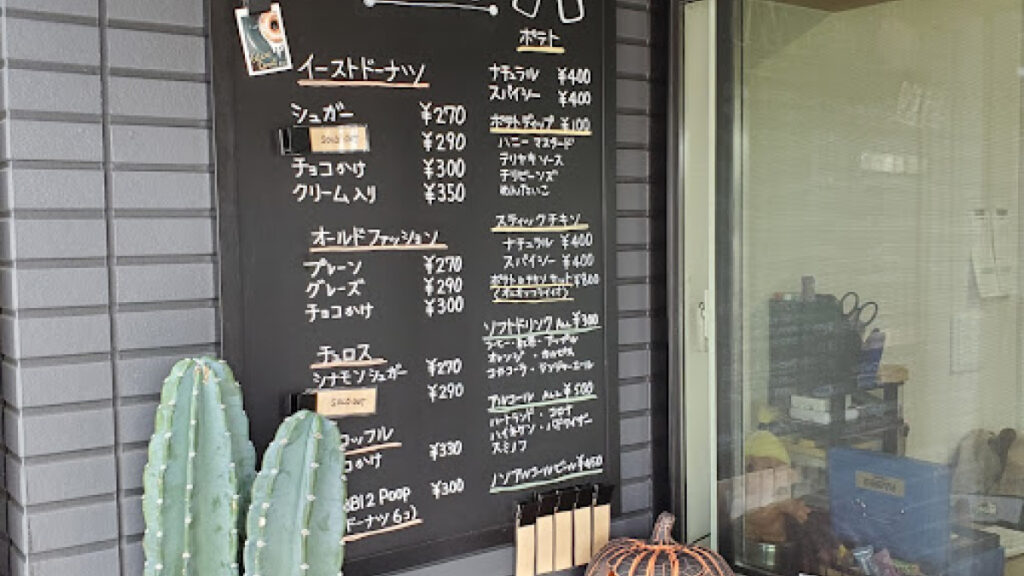 イーストドーナツ
シュガー ¥270
SOLD OUT ¥290
チョコがけ ¥300
クリーム入り ¥350
オールドファッション
プレーン ¥270
グレーズ ¥290
チョコがけ ¥300
チュロス
シナモンシュガー ¥270
SOLD OUT ¥290
コッフル
がけ ¥330
BI2 Poop ¥300
ドーナツ6コ)
ポテト
ナチュラル ¥400
スパイシー ¥400
ポテトディップ ¥100
ハニーマスタード
テリヤキソース
チリビーンズ
めんたいこ
スティックチキン
ナチュラル ¥400
スパイシー ¥400
ポテト&チキンセット ¥800
(オニオンフライ付)
ソフトドリンク ALL ¥300
オレンジ・カルピス
コカコーラ・ジンジャーエール
アルコール ALL ¥500
ハートランド・コロナ
ハイネケン・バドワイザー
スミノフ
ノンアルコールビール ¥450